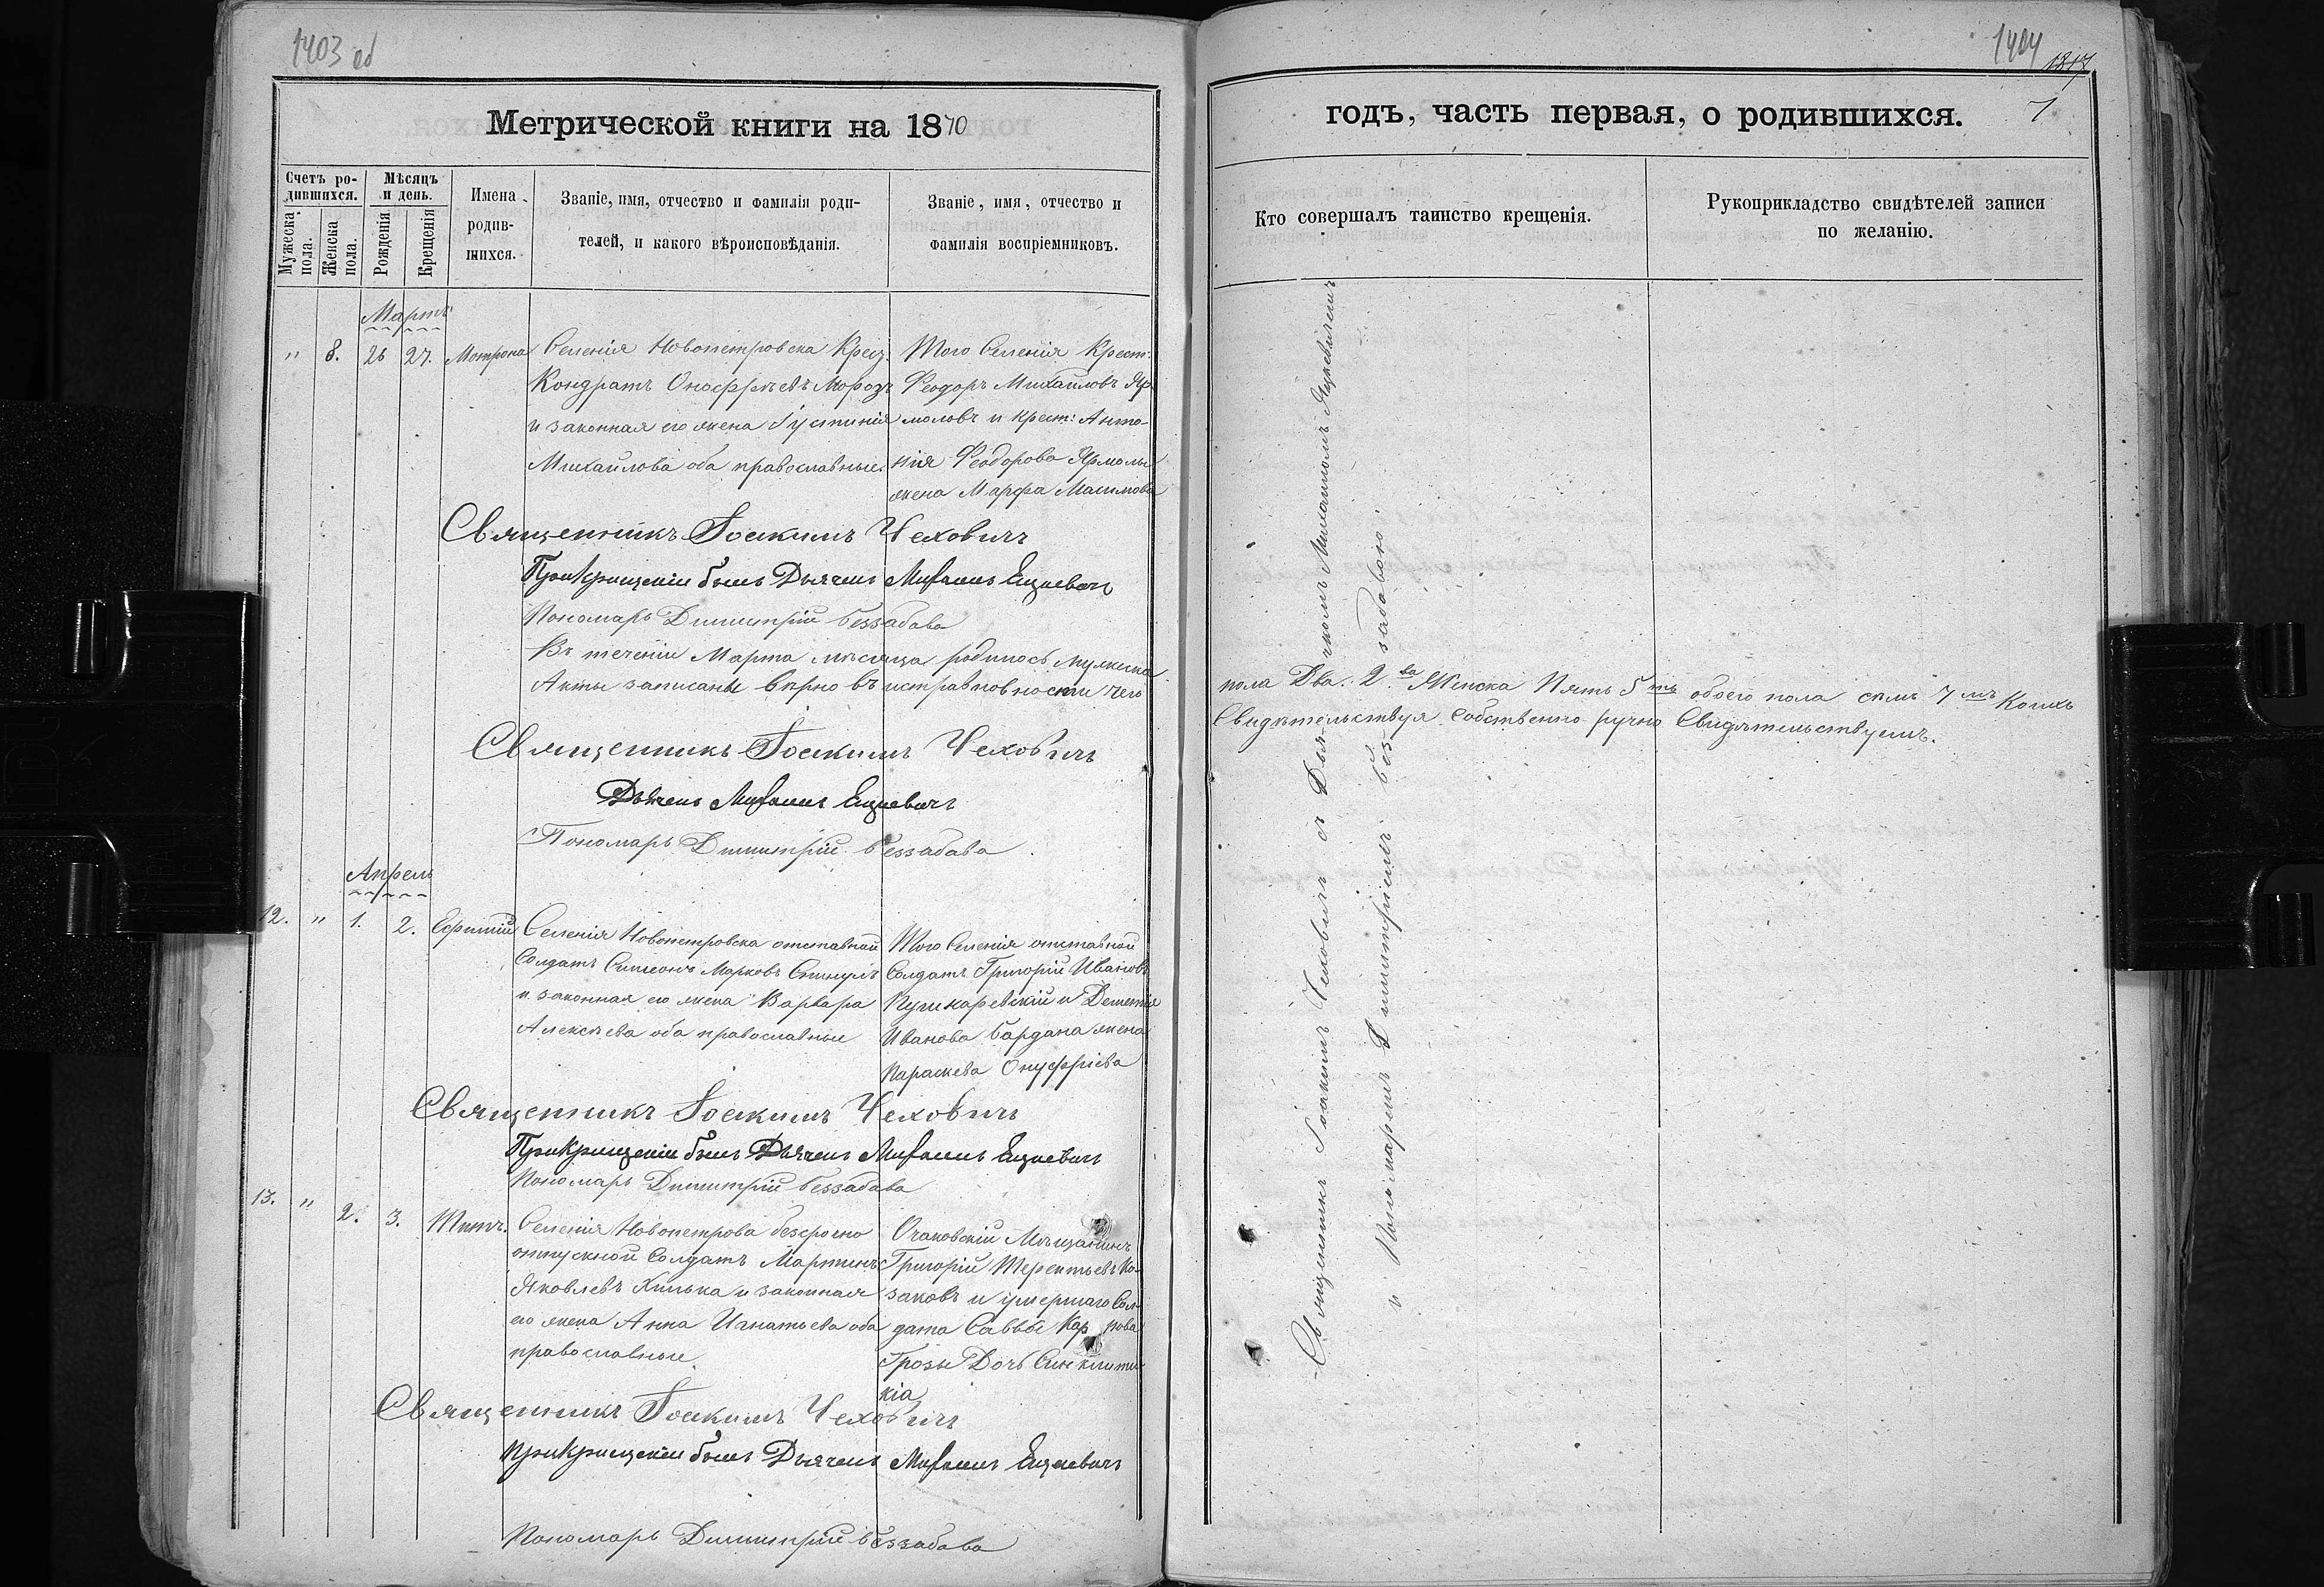 1403 об
Метрической книги на 1870
Счетъ ро-
дившихся.
Мужеска пола.
Женска пола.
Мѣсяцъ
и день.
Рожденія
Крещенія
Имена
родив-
шихся.
Званіе, имя, отчество и фамилія роди-
телей, и какого вѣроисповѣданія.
Званіе, имя, отчество и
фамилія воспріемниковъ.
Мартъ
" 8. 26 27. Мотрона
Селенія Новопетровска Крест:
Кондратъ Оноффріевъ Морозъ
и законная его жена Іустинія
Михайлова оба православные.
Того Селенія Крест:
Феодоръ Михайловъ Яр
моловъ и Крест: Анто-
нія Феодорова Ярмолы
жена Марфа Масимова
Священникъ Іоакимъ Чеховичъ
При Крищеніи былъ Дьячекъ Михаилъ Яцкевичъ
Пономарь Димитрій Беззабава
Въ теченіи Марта мѣсяца родилось Мужеска
Акты записаны вѣрно въ исправновности чего
Священникъ Іоакимъ Чеховичъ
Дьячекъ Михаилъ Яцкевичъ
Пономарь Димитрій Беззабава
Апрель
12. " 1. 2. Ефимій
Селенія Новопетровска отставной
Солдатъ Симеонъ Марковъ
и законная его жена Варвара
Алексѣева оба православные
Того Селенія отставной
Солдатъ Григорій Ивановъ
Пушкаревскій и Дементія
Иванова Бардана жена
Параскева Онуфріева
Священникъ Іоакимъ Чеховичъ
При Крищеніи былъ Дьячекъ Михаилъ Яцкевичъ
Пономарь Димитрій Беззабава
13. " 2. 3. Титъ.
Селенія Новопетрова безсрочно
отпускной Солдатъ Мартинъ
Яковлевъ Хилька и законная
его жена Анна Игнатьева оба
православные.
Очаковскій Мѣщанинъ
Григорій Терентьевъ Ко-
заковъ и умершаго Сол-
дата Саввы Карпова
Грозы Дочь Синклити-
кіа
Священникъ Іоакимъ Чеховичъ
При Крищеніи былъ Дьячекъ Михаилъ Яцкевичъ
Пономарь Димитрій Беззабава
1404
1317
7
годъ, часть первая, о родившихся.
Кто совершалъ таинство крещенія.
Рукоприкладство свидѣтелей записи
по желанію.
пола Два. 2.ва Женска Пять 5ть обоего пола семь 7мь Коихъ
Свидѣтельствуя Собственно ручно Свидѣтельствуемъ.
Священникъ Іоакимъ Чеховичъ съ Дья-чкомъ Михаиломъ Яцкевичемъ
и Пономаремъ Димитріемъ Без-забавою.